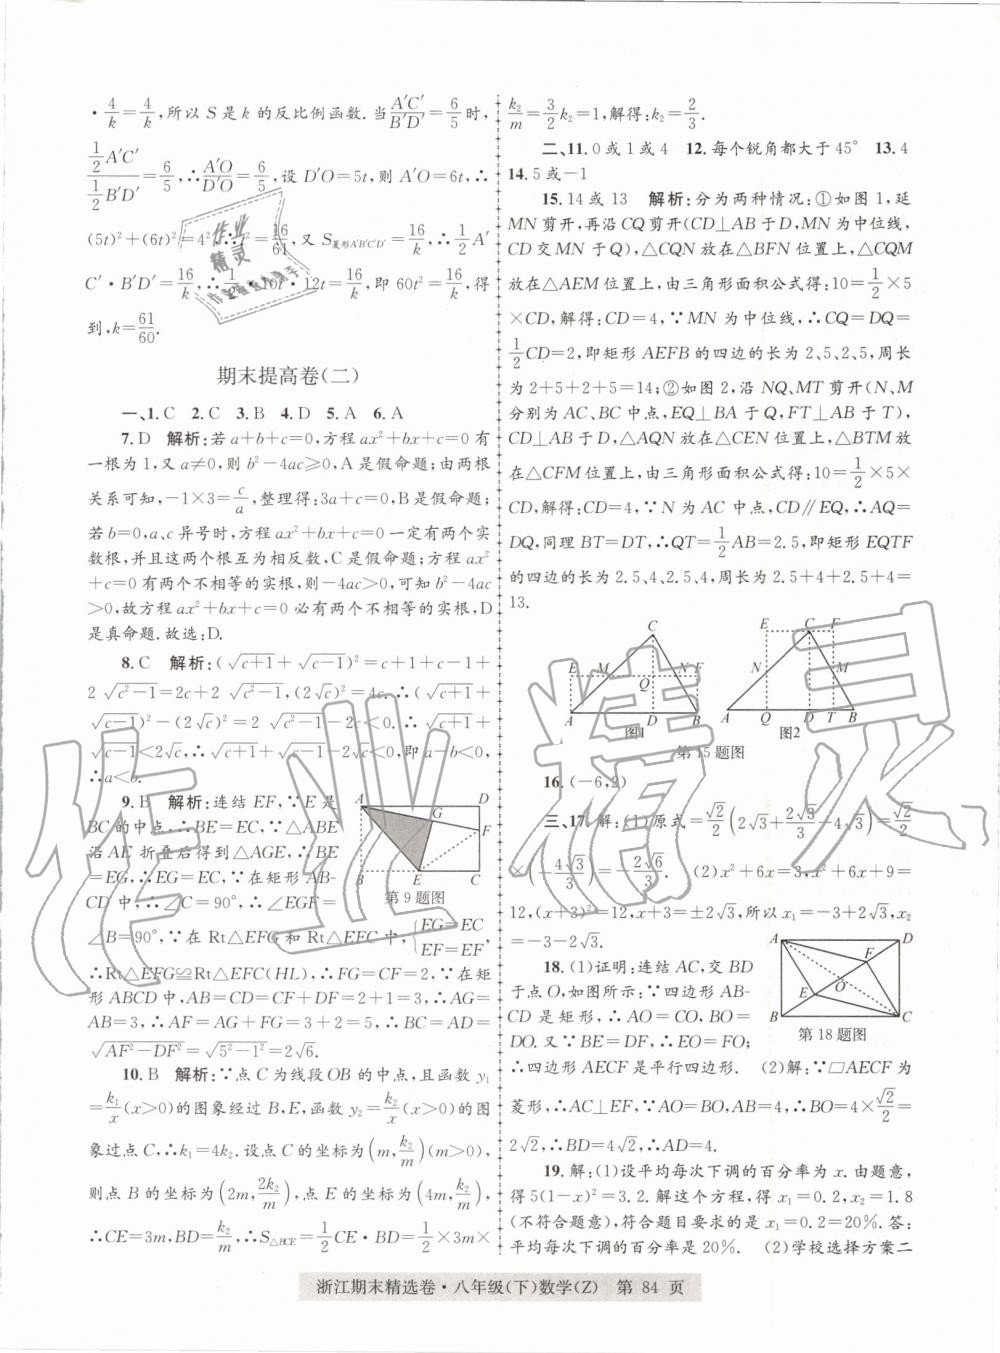 ·4/k=4/k,所以 S 是 k 的反比例函数.当A′C′/B′D′=6/5时,
(1/2 A′C′)/(1/2 B′D′)=6/5,∴A′O/D′O=6/5,设 D′O=5t,则 A′O=6t,∴
(5t)²+(6t)²=4²,∴t²=16/61,又 S菱形A′B′C′D′=16/k,∴1/2 A′
C′·B′D′=16/k,∴1/2·10t·12t=16/k,即 60t²=16/k,得
到,k=61/60.
期末提高卷(二)
一、1.C 2.C 3.B 4.D 5.A 6.A
7.D 解析:若 a+b+c=0,方程 ax²+bx+c=0 有
一根为 1,又 a≠0,则 b²-4ac≥0,A 是假命题;由两根
关系可知,-1×3=c/a,整理得:3a+c=0,B是假命题;
若 b=0,a、c 异号时,方程 ax²+bx+c=0 一定有两个实
数根,并且这两个根互为相反数,C 是假命题;方程 ax²
+c=0 有两个不相等的实根,则-4ac>0,可知 b²-4ac
>0,故方程 ax²+bx+c=0 必有两个不相等的实根,D
是真命题.故选:D.
8.C 解析:(√(c+1)+√(c-1))²=c+1+c-1+
2√(c²-1)=2c+2√(c²-1),(2√c)²=4c,∴(√(c+1)+
√(c-1))²-(2√c)²=2√(c²-1)-2c<0.∴√(c+1)+
√(c-1)<2√c,∴√(c+1)+√(c-1)-2√c<0,即 a-b<0,
∴a<b.
9.B 解析:连结 EF,∵E 是
BC 的中点,∴BE=EC,∵△ABE
沿 AE 折叠后得到△AGE,∴BE
=EG,∴EG=EC,∵在矩形 AB-
CD 中,∴∠C=90°,∴∠EGF=
∠B=90°,∵在 Rt△EFG 和 Rt△EFC 中,{EG=EC EF=EF,
A D G F B E C
第 9 题图
∴Rt△EFG≌Rt△EFC(HL),∴FG=CF=2,∵在矩
形 ABCD 中,AB=CD=CF+DF=2+1=3,∴AG=
AB=3,∴AF=AG+FG=3+2=5,∴BC=AD=
√(AF²-DF²)=√(5²-1²)=2√6.
10.B 解析:∵点 C 为线段 OB 的中点,且函数 y₁
=k₁/x(x>0)的图象经过 B,E,函数 y₂=k₂/x(x>0)的图
象过点 C,∴k₁=4k₂.设点 C 的坐标为(m,k₂/m)(m>0),
则点 B 的坐标为(2m,2k₂/m),点 E 的坐标为(4m,k₂/m),
∴CE=3m,BD=k₂/m,∴S△BCE=1/2 CE·BD=1/2×3m×
k₂/m=3/2 k₂=1,解得:k₂=2/3.
二、11.0 或 1 或 4 12.每个锐角都大于 45° 13.4
14.5 或-1
15.14 或 13 解析:分为两种情况:①如图 1,延
MN 剪开,再沿 CQ 剪开(CD⊥AB 于 D,MN 为中位线,
CD 交 MN 于 Q),△CQN 放在△BFN 位置上,△CQM
放在△AEM 位置上,由三角形面积公式得:10=1/2×5
×CD,解得:CD=4,∵MN 为中位线,∴CQ=DQ=
1/2 CD=2,即矩形 AEFB 的四边的长为 2、5、2、5,周长
为 2+5+2+5=14;②如图 2,沿 NQ、MT 剪开(N、M
分别为 AC、BC 中点,EQ⊥BA 于 Q,FT⊥AB 于 T),
CD⊥AB 于 D,△AQN 放在△CEN 位置上,△BTM 放
在△CFM 位置上,由三角形面积公式得:10=1/2×5×
CD,解得:CD=4,∵N 为 AC 中点,CD∥EQ,∴AQ=
DQ,同理 BT=DT,∴QT=1/2 AB=2.5,即矩形 EQTF
的四边的长为 2.5、4、2.5、4,周长为 2.5+4+2.5+4=
13.
C E M N F Q A D B
图1
E C F N M A Q D T B
图2
第 15 题图
16.(-6,2)
三、17.解:(1)原式=√2/2(2√3+2√3/3-4√3)=√2/2
×(-4√3/3)=-2√6/3. (2)x²+6x=3,x²+6x+9=
12,(x+3)²=12,x+3=±2√3,所以 x₁=-3+2√3,x₂
=-3-2√3.
18.(1)证明:连结 AC,交 BD
于点 O,如图所示:∵四边形 AB-
CD 是矩形,∴AO=CO,BO=
DO.又∵BE=DF,∴EO=FO;
A D F O E B C
第 18 题图
∴四边形 AECF 是平行四边形. (2)解:∵▱AECF 为
菱形,∴AC⊥EF,∵AO=BO,AB=4,∴BO=4×√2/2=
2√2,∴BD=4√2,∴AD=4.
19.解:(1)设平均每次下调的百分率为 x.由题意,
得 5(1-x)²=3.2.解这个方程,得 x₁=0.2,x₂=1.8
(不符合题意),符合题目要求的是 x₁=0.2=20%.答:
平均每次下调的百分率是 20%. (2)学校选择方案二
浙江期末精选卷·八年级(下)数学(Z) 第 84 页
作业精灵